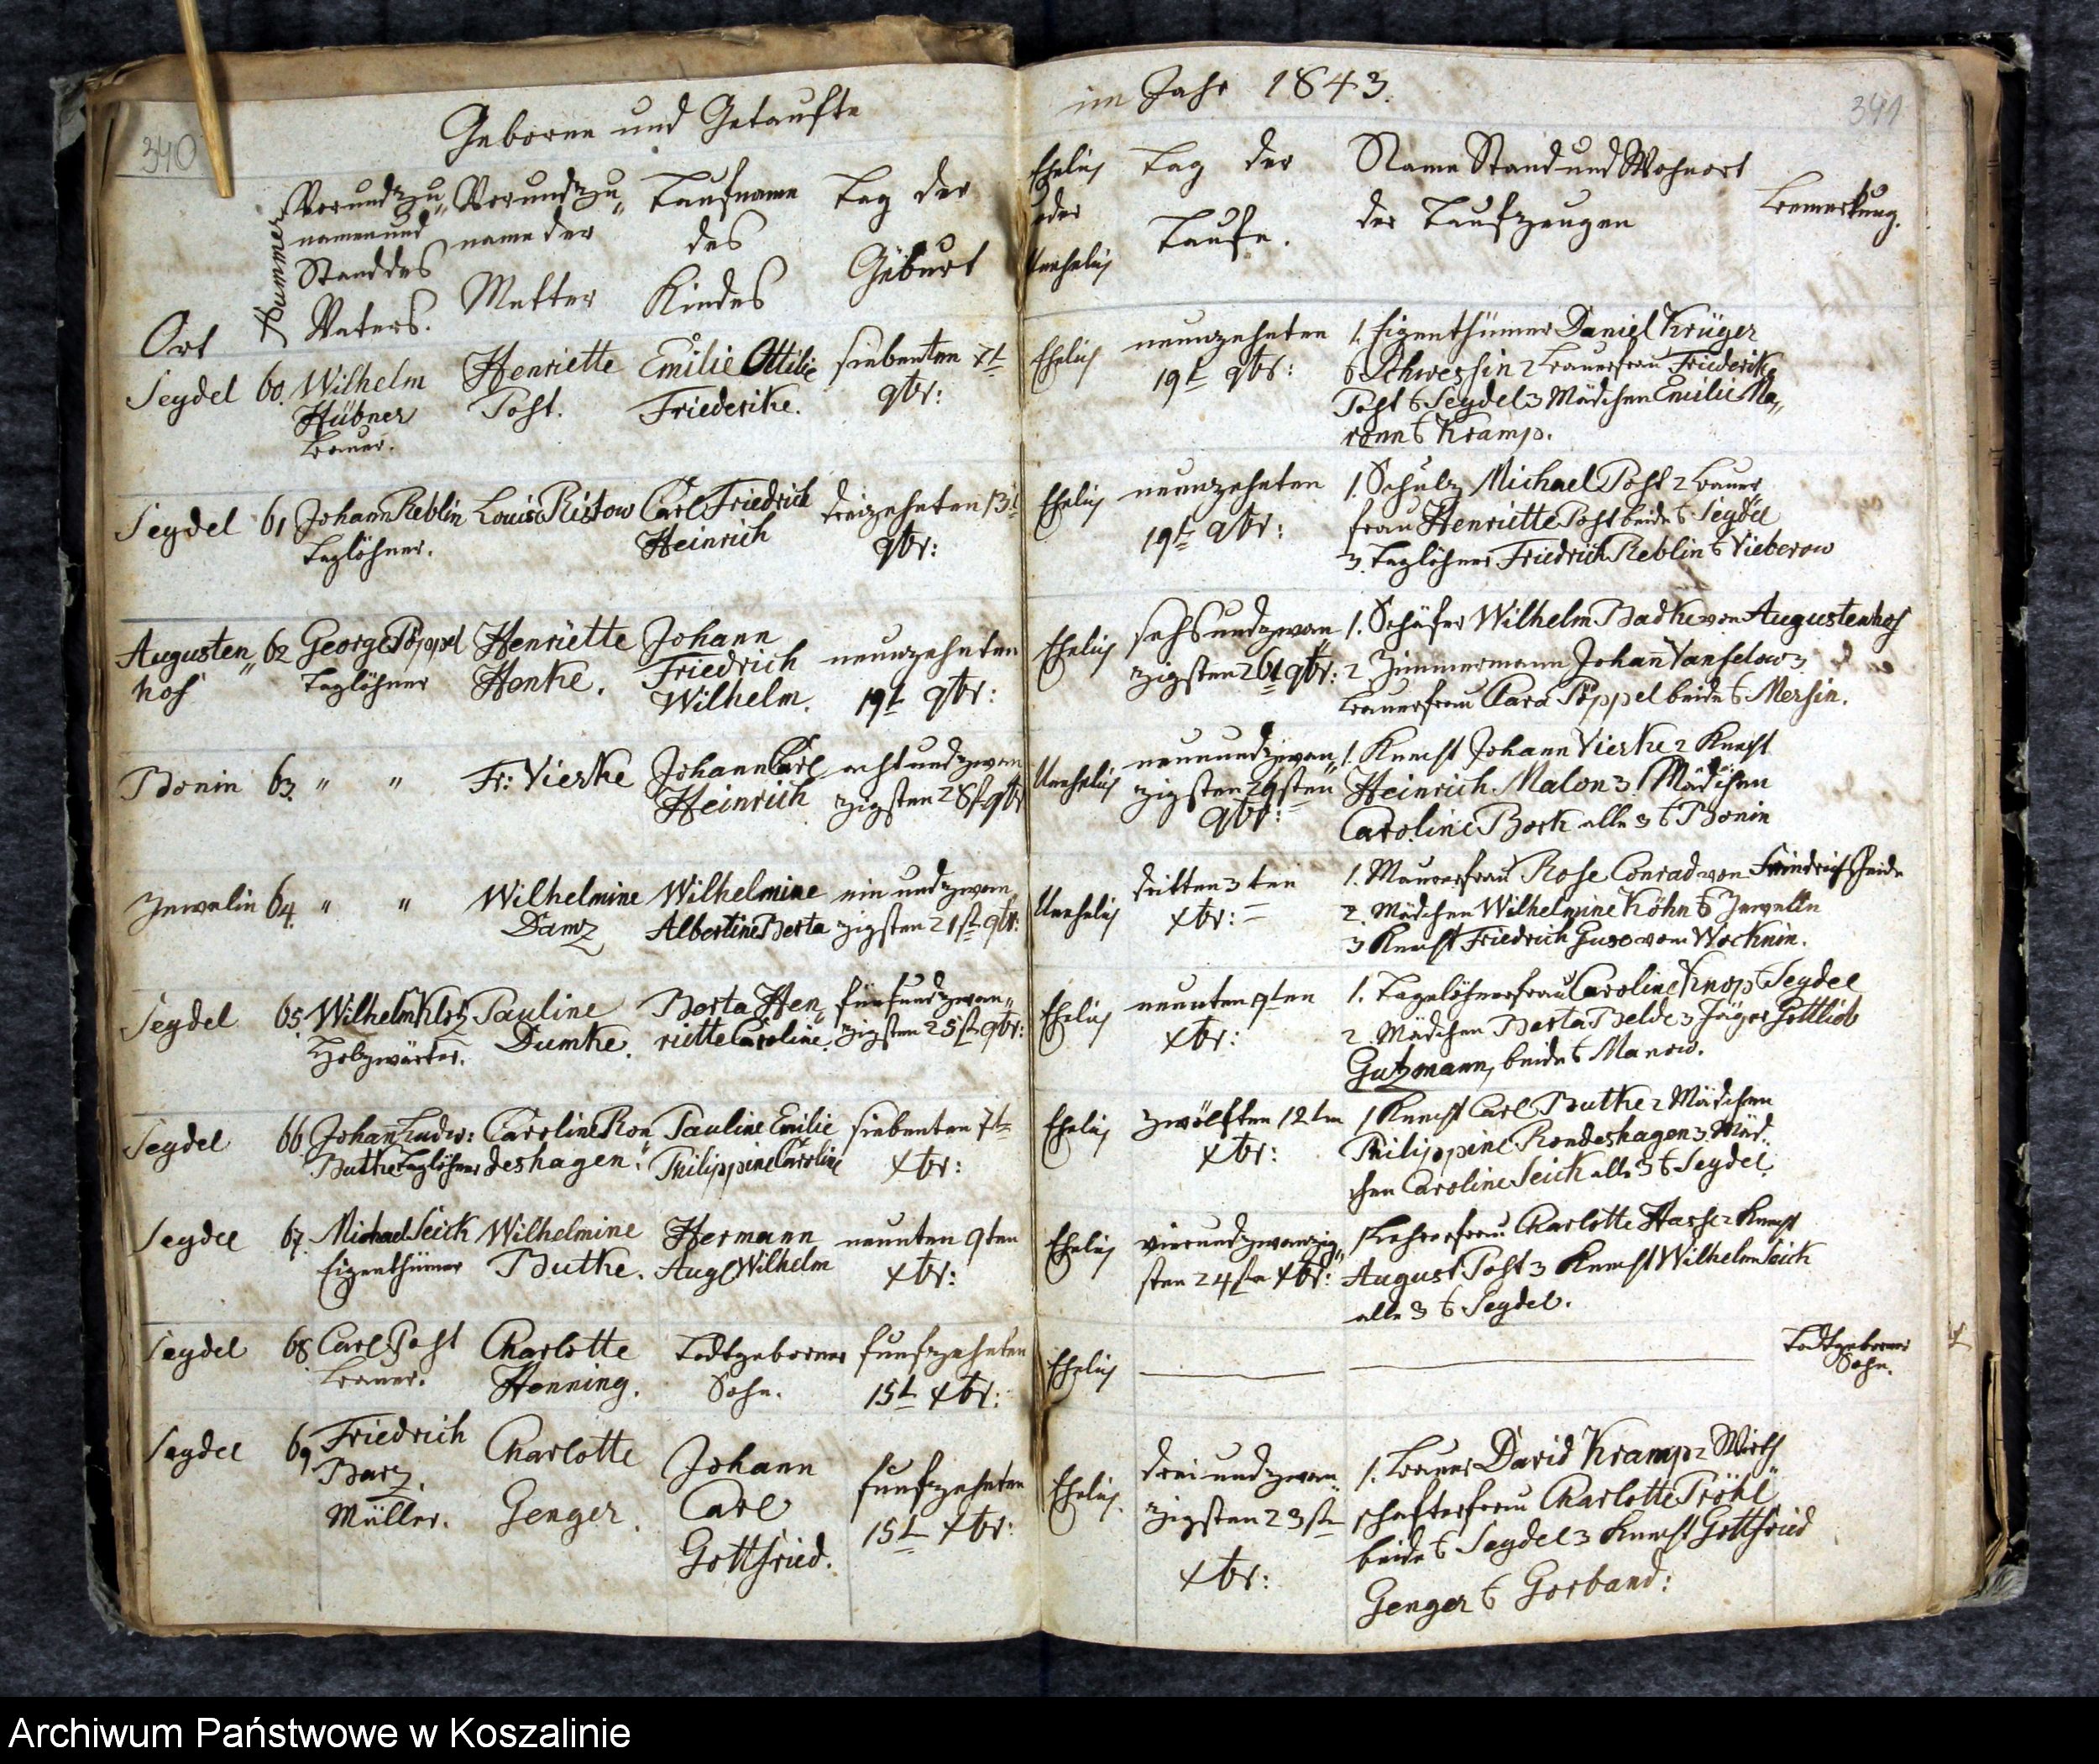 340
Geborne und Getaufte
Ort
Nummer
Vor und Zu„
namen und
Stand des
Vaters.
Vor und Zu„
name der
Mutter
Taufname
des
Kindes
Tag der
Geburt
im Jahr 1843.
341
Ehelich
oder
Unehelich
Tag der
Taufe.
Name Stand und Wohnort
der Taufzeugen
Bemerkung.
Seydel 60. Wilhelm
Hübner
Bauer.
Henriette
Post.
Emilie Ottilie
Friederike.
siebenten 7t
9br:
Ehelich
neunzehnten
19t 9br:
1. Eigenthümer Daniel Krüger
Schwessin 2 Bauerfrau Friederike
Post Seydel 3 Mädchen Emilie Ma„
Kramp.
Seydel 61 Johann Reblin
Taglöhner.
Louise Ristow
Carl Friedrich
Heinrich
dreizehnten 13t
9br:
Ehelich
neunzehnten
19t 9br:
1. Schulz Michael Post 2 Bauer
frau Henriette Post beide Seydel
3. Taglöhner Friedrich Reblin Vieberow
Augusten„
hof
62 George Pöppel
Taglöhner
Henriette
Henke.
Johann
Friedrich
Wilhelm.
neunzehnten
19t 9br:
Ehelich
sechsundzwan
zigsten 26t 9br:
1. Schäfer Wilhelm Badke von Augustenhof
2 Zimmermann Johann Vanselow 3
Bauerfrau Clara Pöppel beide Mersin.
Bonin 63. " "
Fr: Vierke
Johann Carl
Heinrich
achtundzwan
zigsten 28t 9br
Unehelich
neunundzwan„
zigsten 29sten
9br:
1. Knecht Johann Vierke 2 Knecht
Heinrich Malon 3. Mädchen
Caroline Bork alle 3 Bonin
Zewelin 64. " "
Wilhelmine
Damz
Wilhelmine
Albertine Berta
ein und zwan
zigsten 21st 9br:
Unehelich
dritten 3ten
xbr:
1. Maurerfrau Rose Conrad von
2. Mädchen Wilhelmine Köhn Zewelin
3 Knecht Friedrich Guse vom Wocknin.
Seydel 65. Wilhelm Klotz
Holzwärter.
Pauline
Dumke.
Berta Hen„
riette Caroline.
fünfundzwan„
zigsten 25st 9br:
Ehelich
neunten 9ten
xbr:
1. Tagelöhnerfrau Caroline Knop Seydel
2. Mädchen Berta Belde 3 Jäger Gottlieb
Gutzmann, beide Manow.
Seydel 66. Johann Ludw:
Butke Taglöhner
Caroline Ron„
deshagen.
Pauline Emilie
Philippine Caroline
siebenten 7t
xbr:
Ehelich
zwölften 12ten
xbr:
1 Knecht Carl Butke 2 Mädchen
Philippine Rondeshagen 3. Mäd„
chen Caroline Seick alle 3 Seydel.
Seydel 67. Michael Seick
Eigenthümer
Wilhelmine
Butke.
Hermann
Aug Wilhelm
neunten 9ten
xbr:
Ehelich
vierundzwanzig„
sten 24st xbr:
1 Lehrerfrau Charlotte Hasse 2 Knecht
August Post 3 Knecht Wilhelm Seick
alle 3 Seydel.
Seydel 68 Carl Post
Bauer.
Charlotte
Henning.
Todtgeborner
Sohn.
funfzehnten
15t xbr:
Ehelich
Todtgeborner
Sohn.
Seydel 69 Friedrich
Barz.
Müller.
Charlotte
Genger.
Johann
Carl
Gottfried.
funfzehnten
15t xbr:
Ehelich.
dreiundzwan„
zigsten 23st
xbr:
1. Bauer David Kramp 2 Wirth„
schafterfrau Charlotte Pröhl
beide Seydel 3 Knecht Gottfried
Genger Gorband:
Archiwum Państwowe w Koszalinie